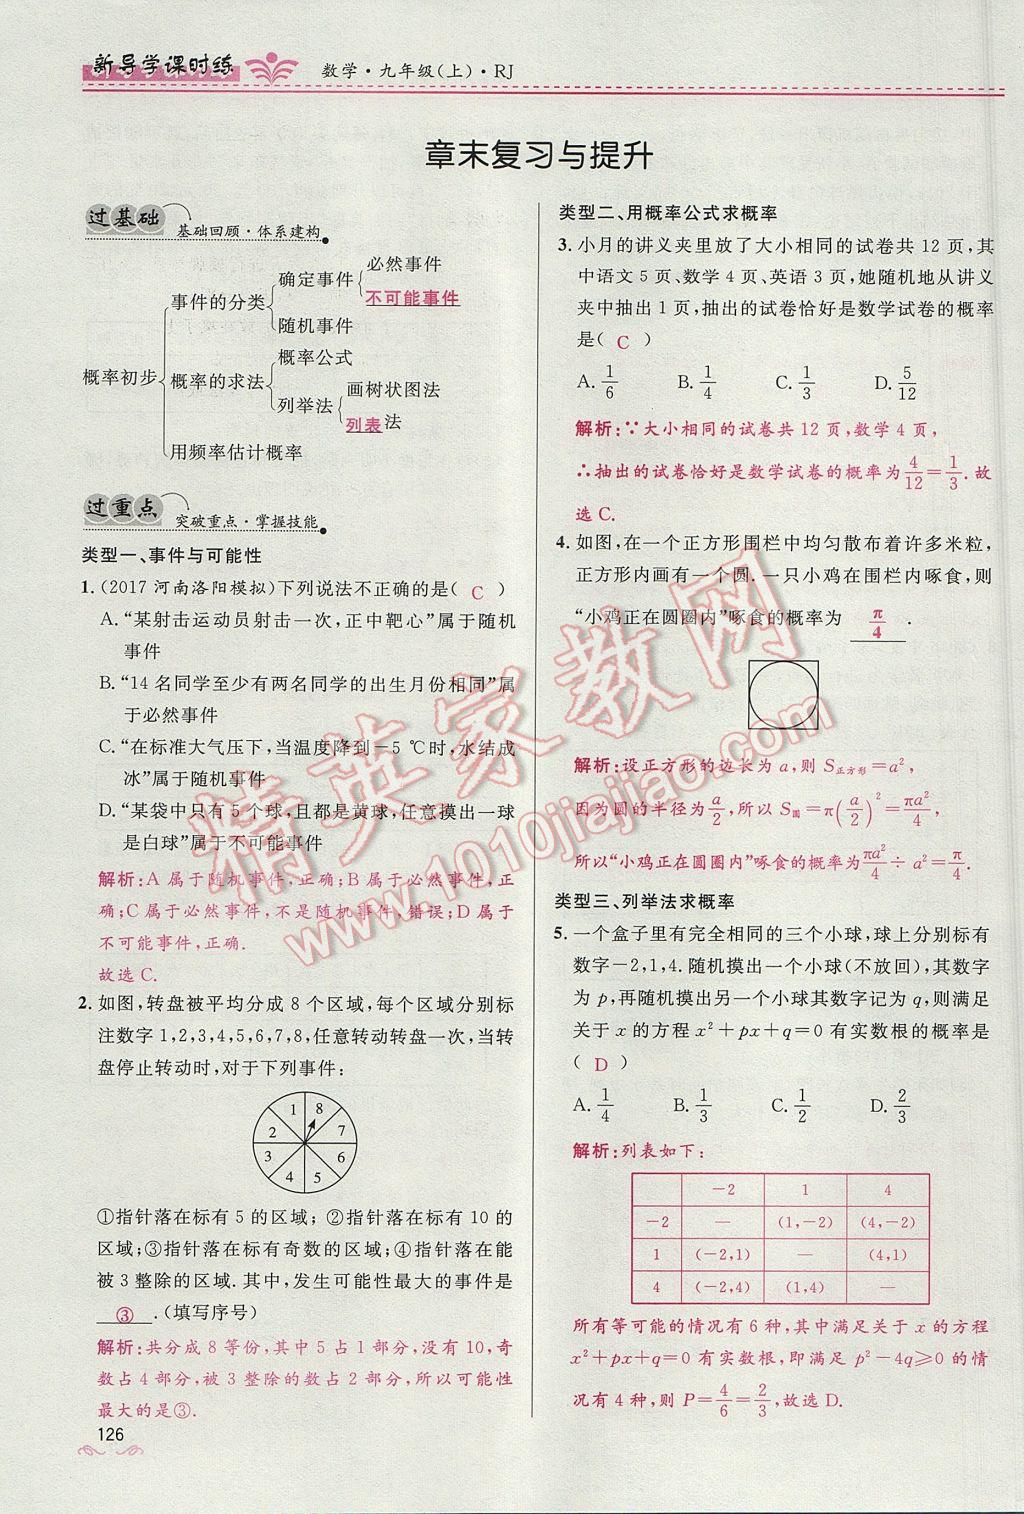 新导学课时练
数学·九年级(上)·RJ
章末复习与提升
过基础 基础回顾·体系建构
概率初步
事件的分类
确定事件
必然事件
不可能事件
随机事件
概率的求法
概率公式
列举法
画树状图法
列表法
用频率估计概率
过重点 突破重点·掌握技能
类型一、事件与可能性
1.(2017 河南洛阳模拟)下列说法不正确的是( C )
A.“某射击运动员射击一次,正中靶心”属于随机
事件
B.“14 名同学至少有两名同学的出生月份相同”属
于必然事件
C.“在标准大气压下,当温度降到-5 ℃时,水结成
冰”属于随机事件
D.“某袋中只有 5 个球,且都是黄球,任意摸出一球
是白球”属于不可能事件
解析:A 属于随机事件,正确;B 属于必然事件,正
确;C 属于必然事件,不是随机事件,错误;D 属于
不可能事件,正确.
故选 C.
2.如图,转盘被平均分成 8 个区域,每个区域分别标
注数字 1,2,3,4,5,6,7,8,任意转动转盘一次,当转
盘停止转动时,对于下列事件:
1 8
2 7
3 6
4 5
①指针落在标有 5 的区域;②指针落在标有 10 的
区域;③指针落在标有奇数的区域;④指针落在能
被 3 整除的区域.其中,发生可能性最大的事件是
③ .(填写序号)
解析:共分成 8 等份,其中 5 占 1 部分,没有 10,奇
数占 4 部分,被 3 整除的数占 2 部分,所以可能性
最大的是③.
126
类型二、用概率公式求概率
3.小月的讲义夹里放了大小相同的试卷共 12 页,其
中语文 5 页、数学 4 页、英语 3 页,她随机地从讲义
夹中抽出 1 页,抽出的试卷恰好是数学试卷的概率
是( C )
A. 1/6 B. 1/4 C. 1/3 D. 5/12
解析:∵大小相同的试卷共 12 页,数学 4 页,
∴抽出的试卷恰好是数学试卷的概率为 4/12 = 1/3. 故
选 C.
4.如图,在一个正方形围栏中均匀散布着许多米粒,
正方形内画有一个圆.一只小鸡在围栏内啄食,则
“小鸡正在圆圈内”啄食的概率为 π/4 .
解析:设正方形的边长为 a,则 S正方形=a²,
因为圆的半径为 a/2,所以 S圆=π(a/2)²=πa²/4,
所以“小鸡正在圆圈内”啄食的概率为 πa²/4 ÷ a²=π/4.
类型三、列举法求概率
5.一个盒子里有完全相同的三个小球,球上分别标有
数字-2,1,4.随机摸出一个小球(不放回),其数字
为 p,再随机摸出另一个小球其数字记为 q,则满足
关于 x 的方程 x²+px+q=0 有实数根的概率是
( D )
A. 1/4 B. 1/3 C. 1/2 D. 2/3
解析:列表如下:
-2 1 4
-2 — (1,-2) (4,-2)
1 (-2,1) — (4,1)
4 (-2,4) (1,4) —
所有等可能的情况有 6 种,其中满足关于 x 的方程
x²+px+q=0 有实数根,即满足 p²-4q≥0 的情
况有 4 种,则 P=4/6=2/3,故选 D.
精英家教网
www.1010jiajiao.com